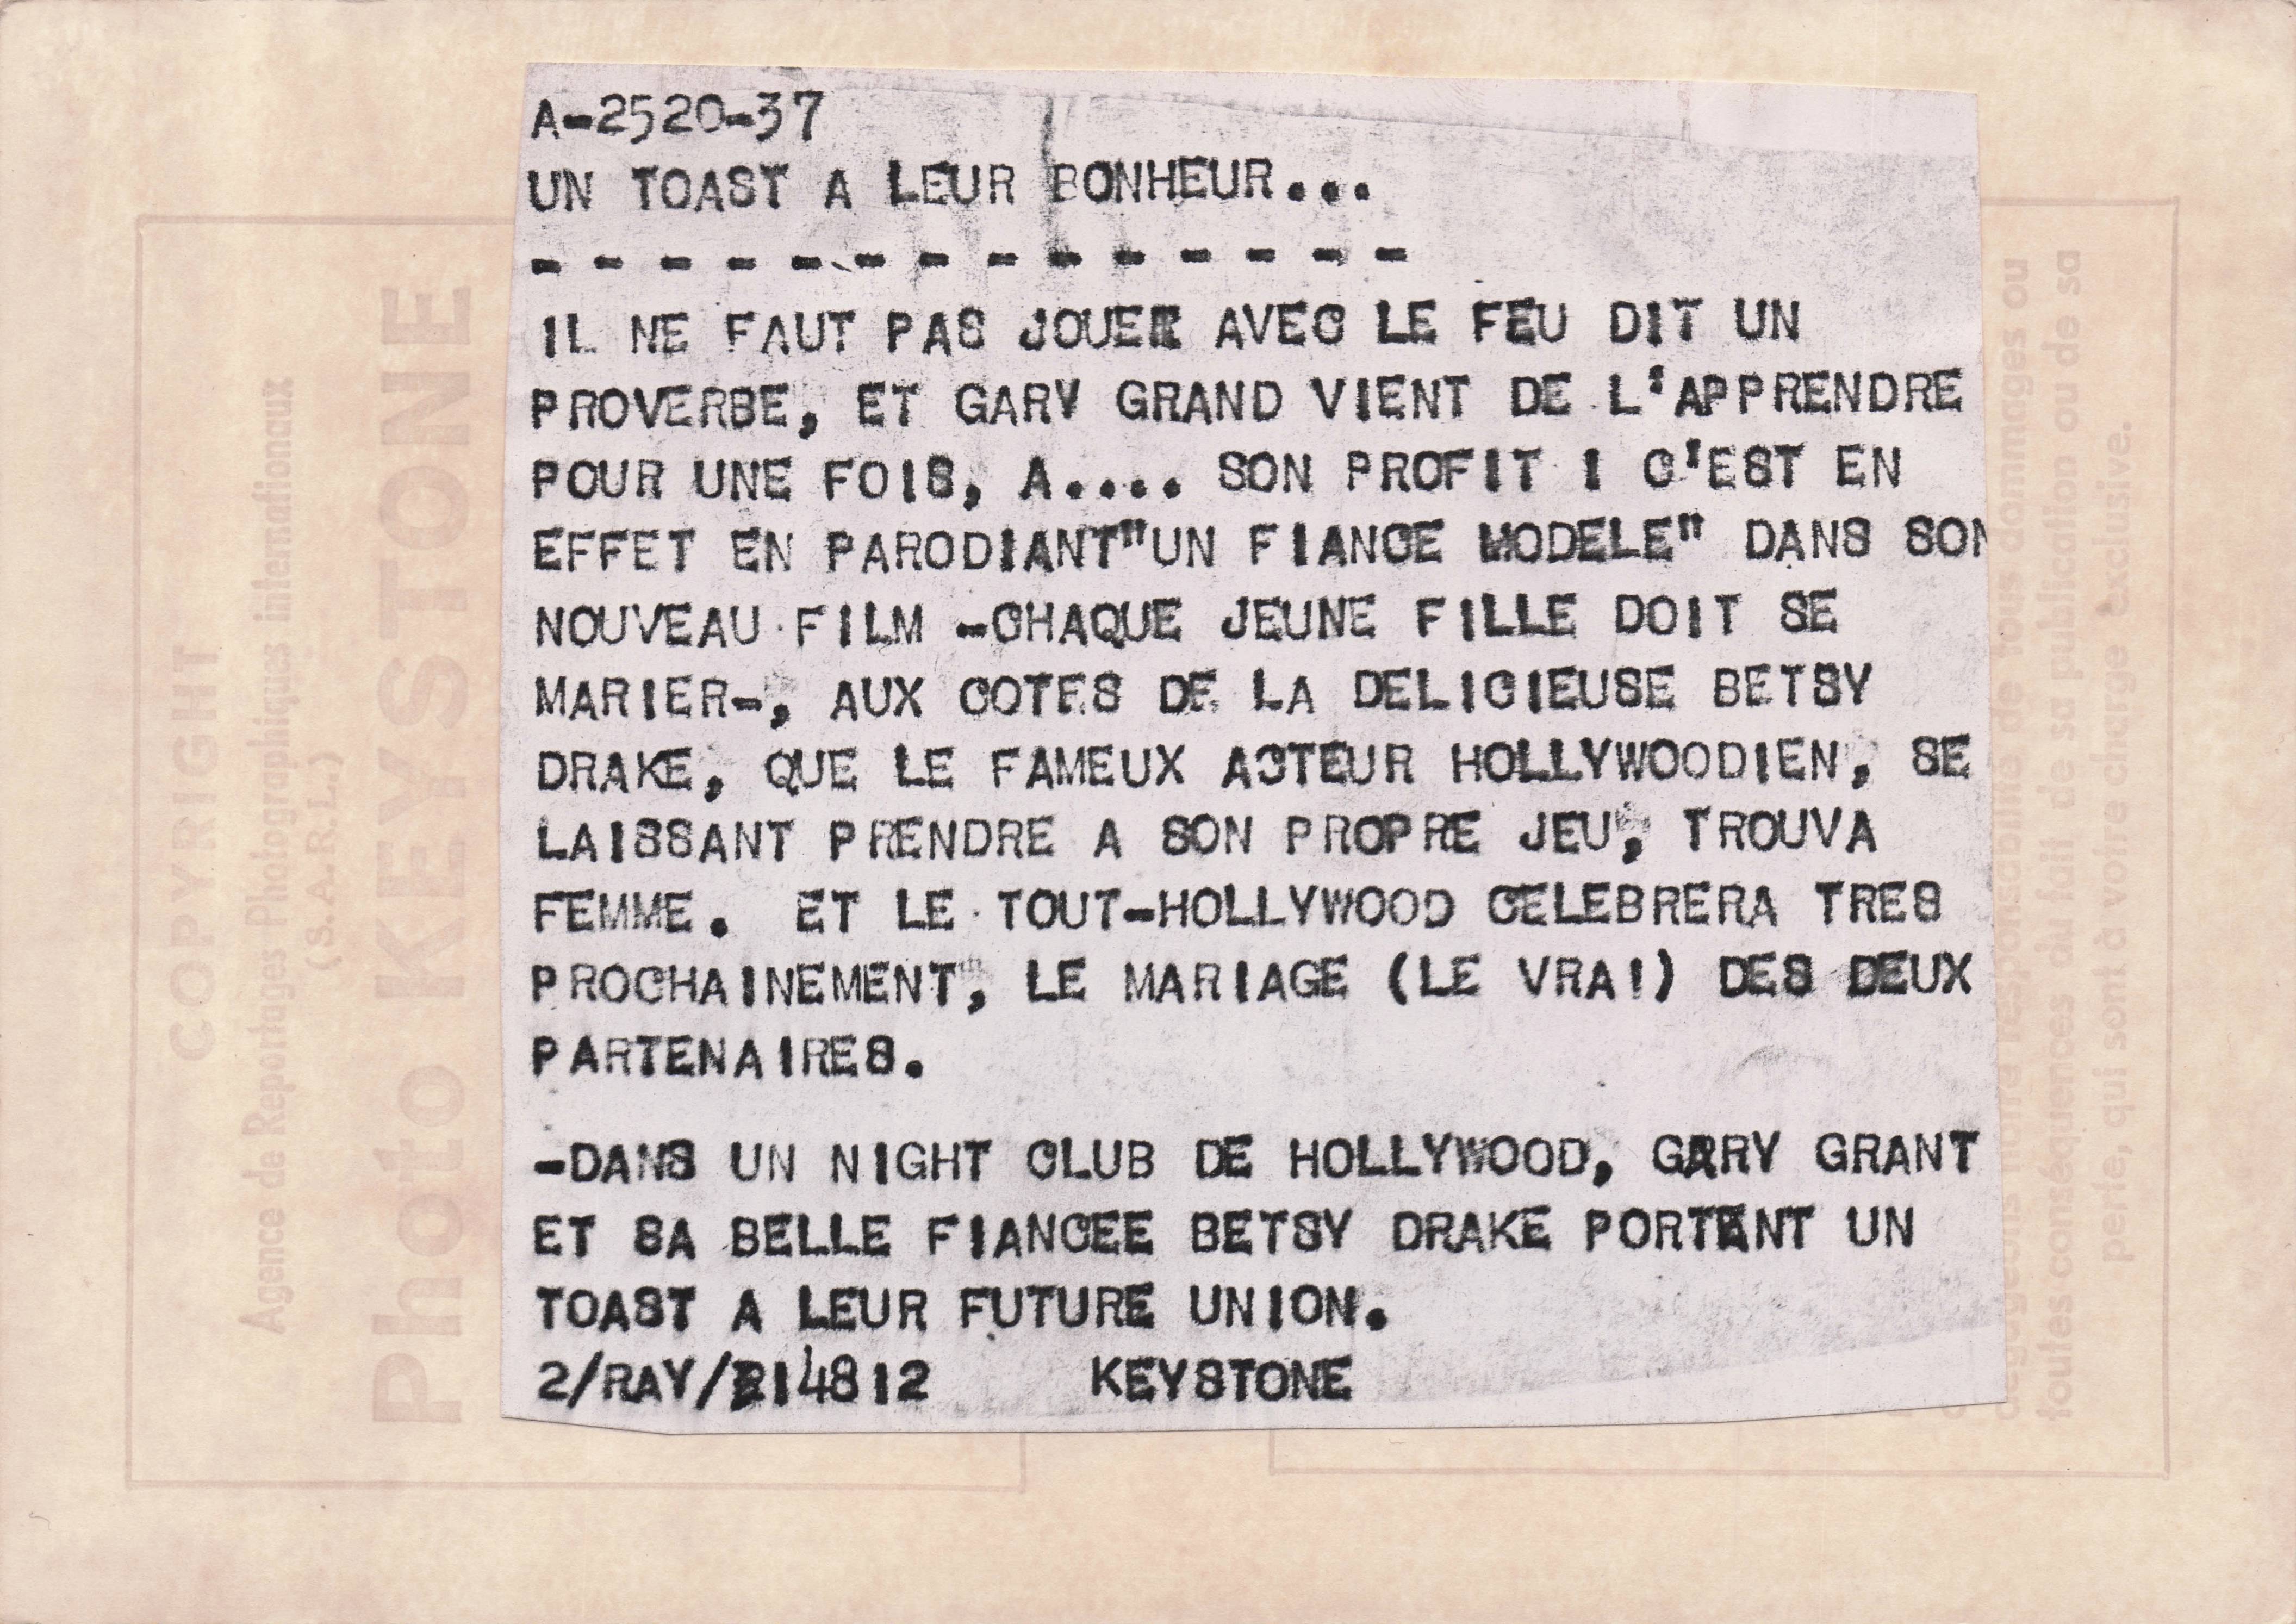 A-2520-37
UN TOAST A LEUR BONHEUR...
- - - - - - - - - - - - - -
IL NE FAUT PAS JOUER AVEC LE FEU DIT UN
PROVERBE, ET GARY GRAND VIENT DE L'APPRENDRE
POUR UNE FOIS, A.... SON PROFIT ! C'EST EN
EFFET EN PARODIANT"UN FIANCE MODELE" DANS SON
NOUVEAU FILM -CHAQUE JEUNE FILLE DOIT SE
MARIER-, AUX COTES DE LA DELICIEUSE BETSY
DRAKE, QUE LE FAMEUX ACTEUR HOLLYWOODIEN, SE
LAISSANT PRENDRE A SON PROPRE JEU, TROUVA
FEMME. ET LE TOUT-HOLLYWOOD CELEBRERA TRES
PROCHAINEMENT, LE MARIAGE (LE VRAI) DES DEUX
PARTENAIRES.
-DANS UN NIGHT CLUB DE HOLLYWOOD, GARY GRANT
ET SA BELLE FIANCEE BETSY DRAKE PORTENT UN
TOAST A LEUR FUTURE UNION.
2/RAY/B14812 KEYSTONE
COPYRIGHT
Agence de Reportages Photographiques internationaux
(S.A.R.L.)
Photo KEYSTONE
de tous dommages ou
toutes conséquences du fait de sa publication ou de sa
perte, qui sont à votre charge exclusive.